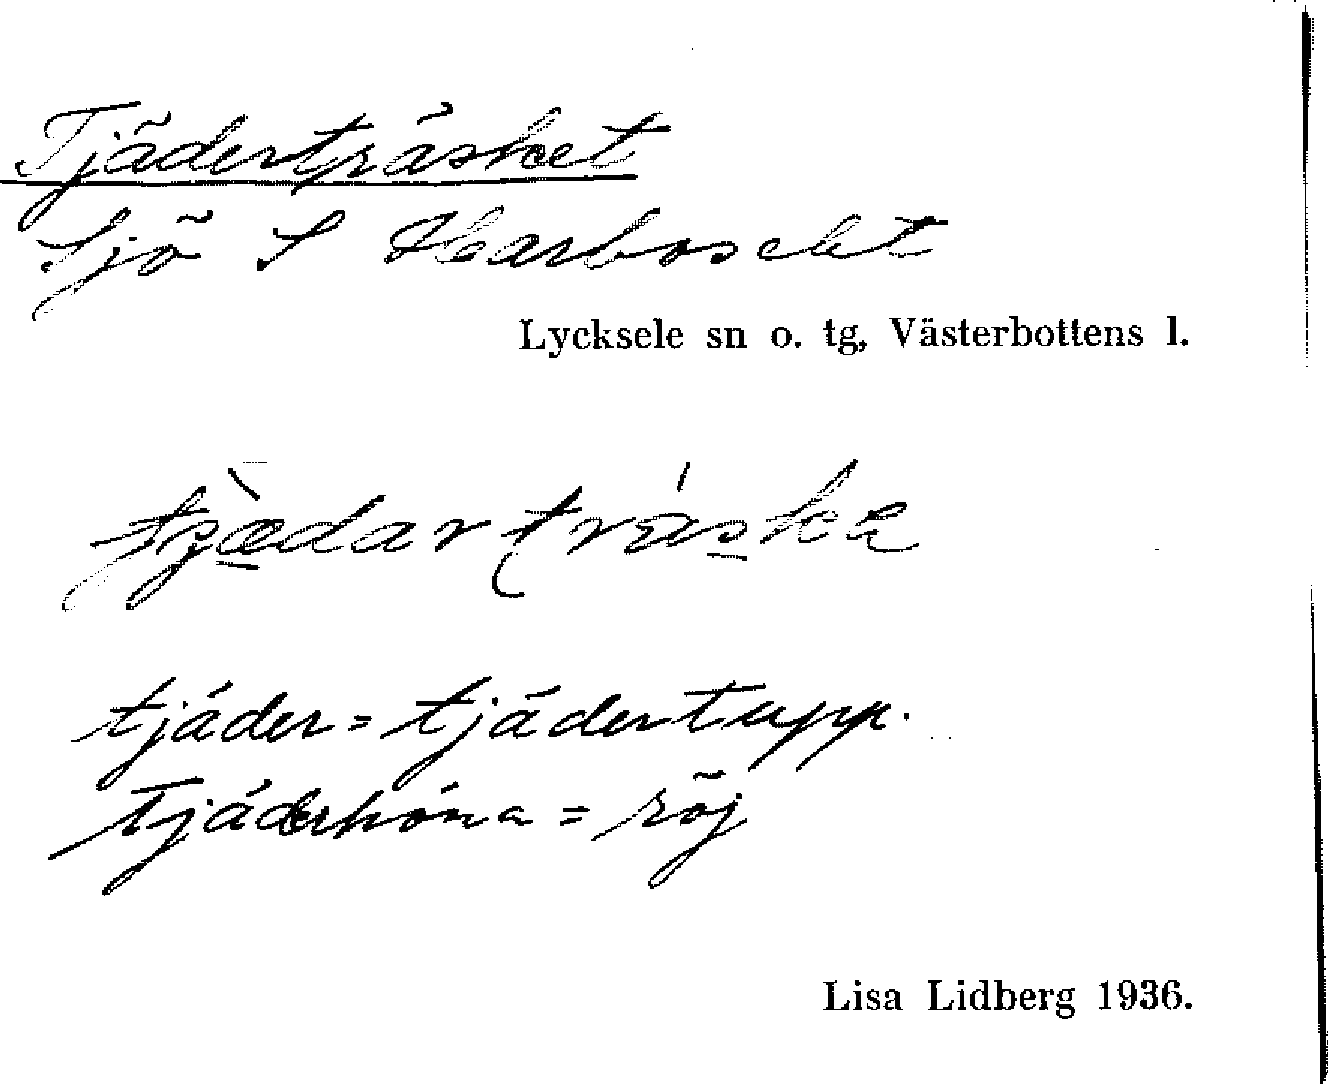 Tjäderträsket
Sjö S Harboselet
Lycksele sn o. tg, Västerbottens l.
tjäder = tjädertupp.
Tjäderhöna = röj
Lisa Lidberg 1936.